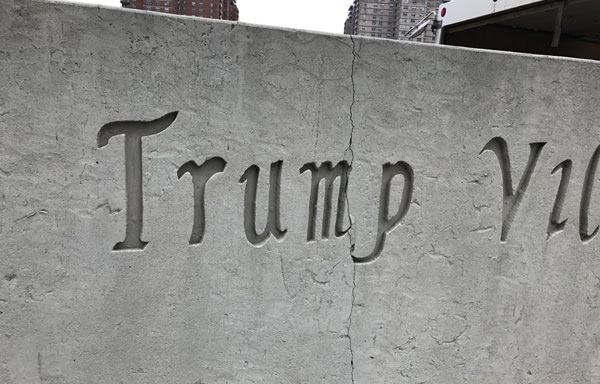 Trump Vil